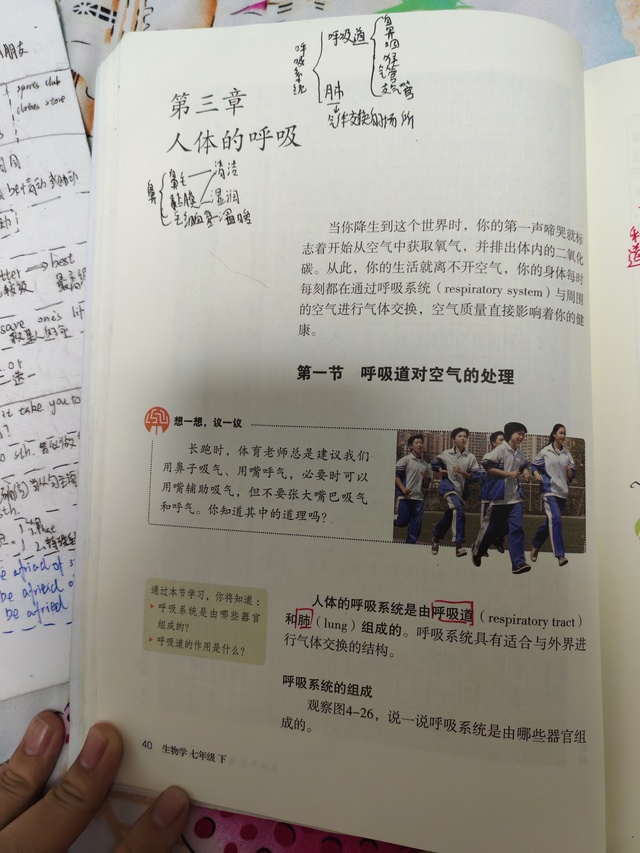 呼吸系统
呼吸道
鼻
咽
喉
气管
支气管
肺
气体交换的场所
第三章
人体的呼吸
鼻
鼻毛 清洁
黏膜 湿润
毛细血管 温暖
当你降生到这个世界时，你的第一声啼哭就标
志着开始从空气中获取氧气，并排出体内的二氧化
碳。从此，你的生活就离不开空气，你的身体每时
每刻都在通过呼吸系统（respiratory system）与周围
的空气进行气体交换，空气质量直接影响着你的健
康。
第一节 呼吸道对空气的处理
想一想，议一议
长跑时，体育老师总是建议我们
用鼻子吸气、用嘴呼气，必要时可以
用嘴辅助吸气，但不要张大嘴巴吸气
和呼气。你知道其中的道理吗？
通过本节学习，你将知道：
呼吸系统是由哪些器官
组成的？
呼吸道的作用是什么？
人体的呼吸系统是由呼吸道（respiratory tract）
和肺（lung）组成的。呼吸系统具有适合与外界进
行气体交换的结构。
呼吸系统的组成
观察图4-26，说一说呼吸系统是由哪些器官组
成的。
40 生物学 七年级 下
朋友
sports club
clothes store
best
save one's
it take you to
be afraid of
be afraid